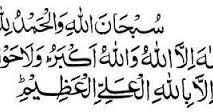 سُبْحَانَ اللهِ وَالْحَمْدُ لِلّٰهِ
اِلٰهَ اِلَّا اللهُ وَاللهُ اَكْبَرُ وَلَا حَوْلَ
اِلَّا بِاللهِ الْعَلِيِّ الْعَظِيْمِ